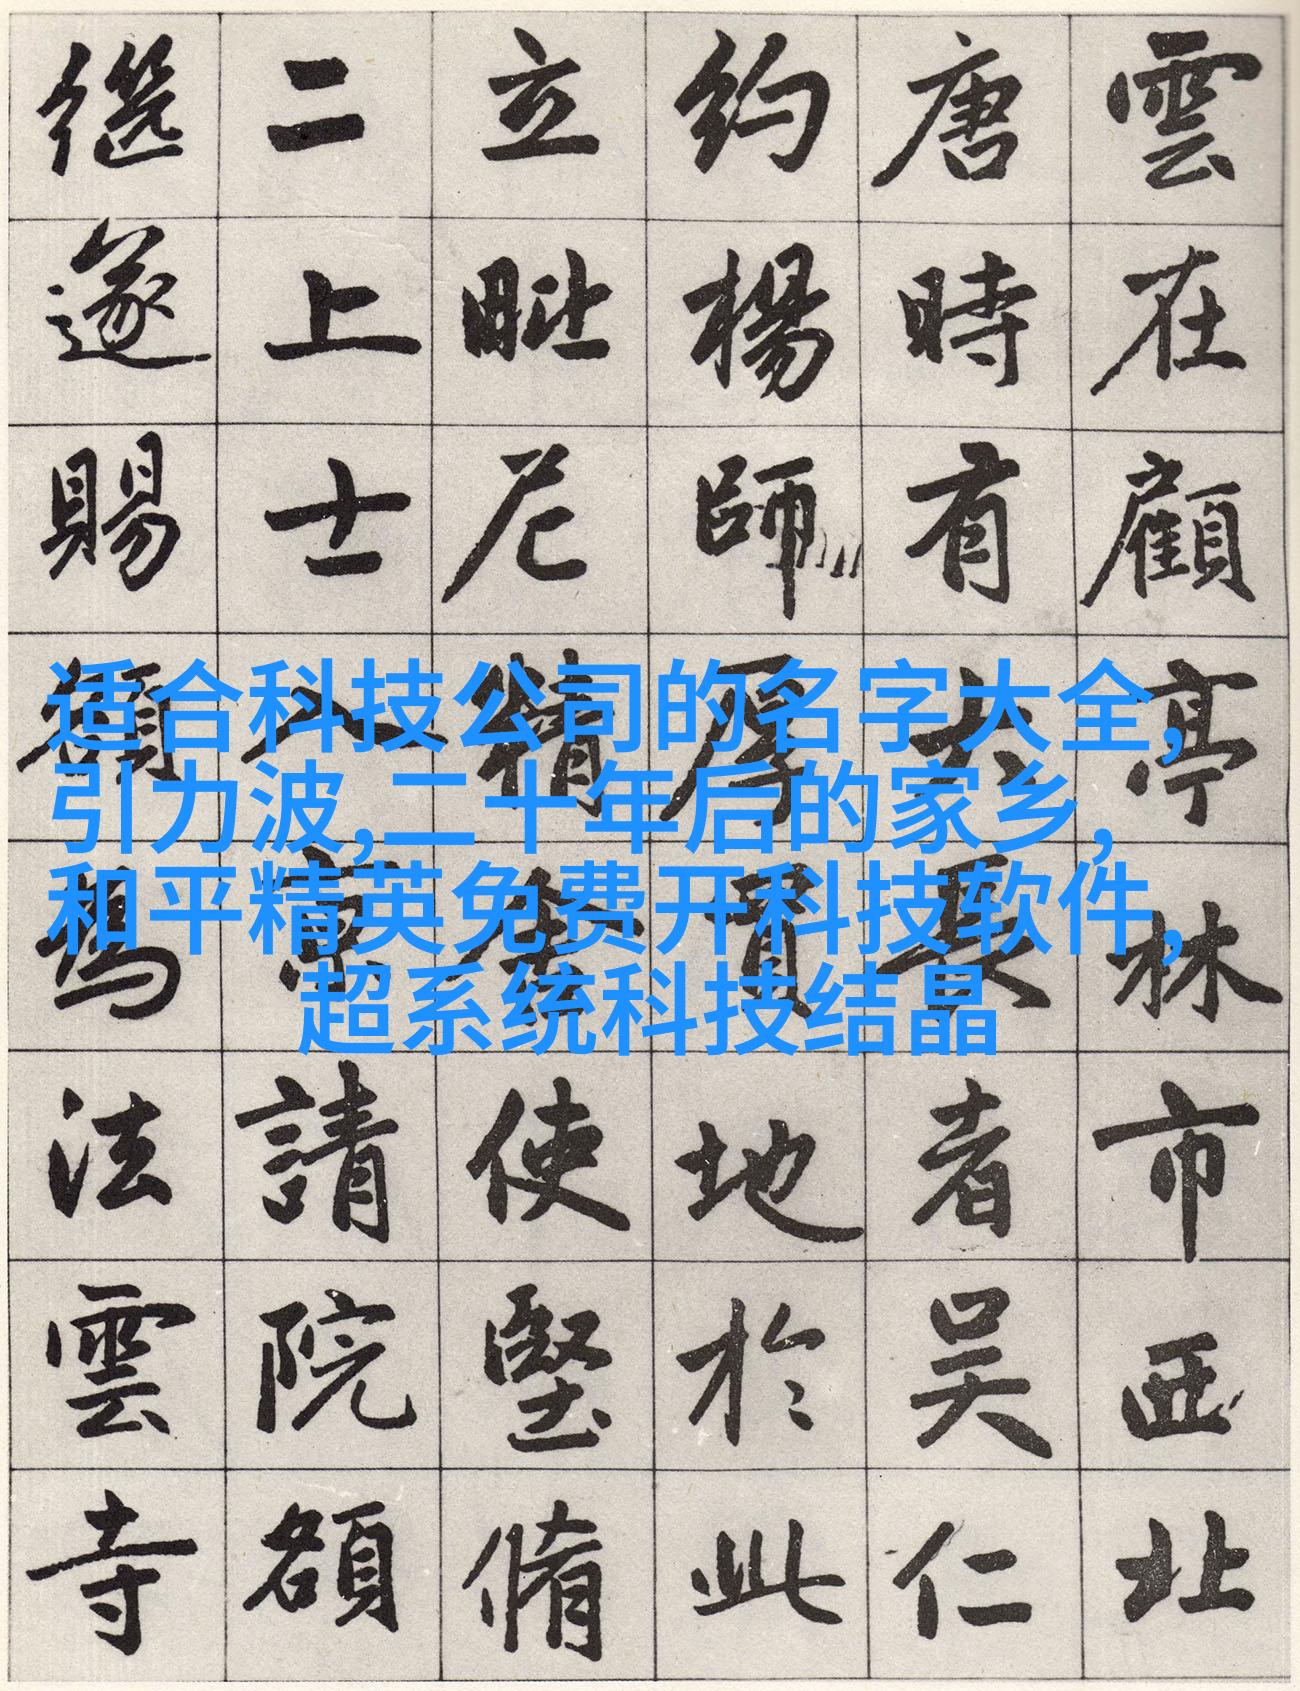 适合科技公司的名字大全,
引力波,二十年后的家乡,
和平精英免费开科技软件,
超系统科技结晶
雲在顧亭林市西北
唐時有大長者吳仁
約楊師厚買地於此
立毗尼精舍使堅脩
二上士入京請院額
継遂賜額為法雲寺